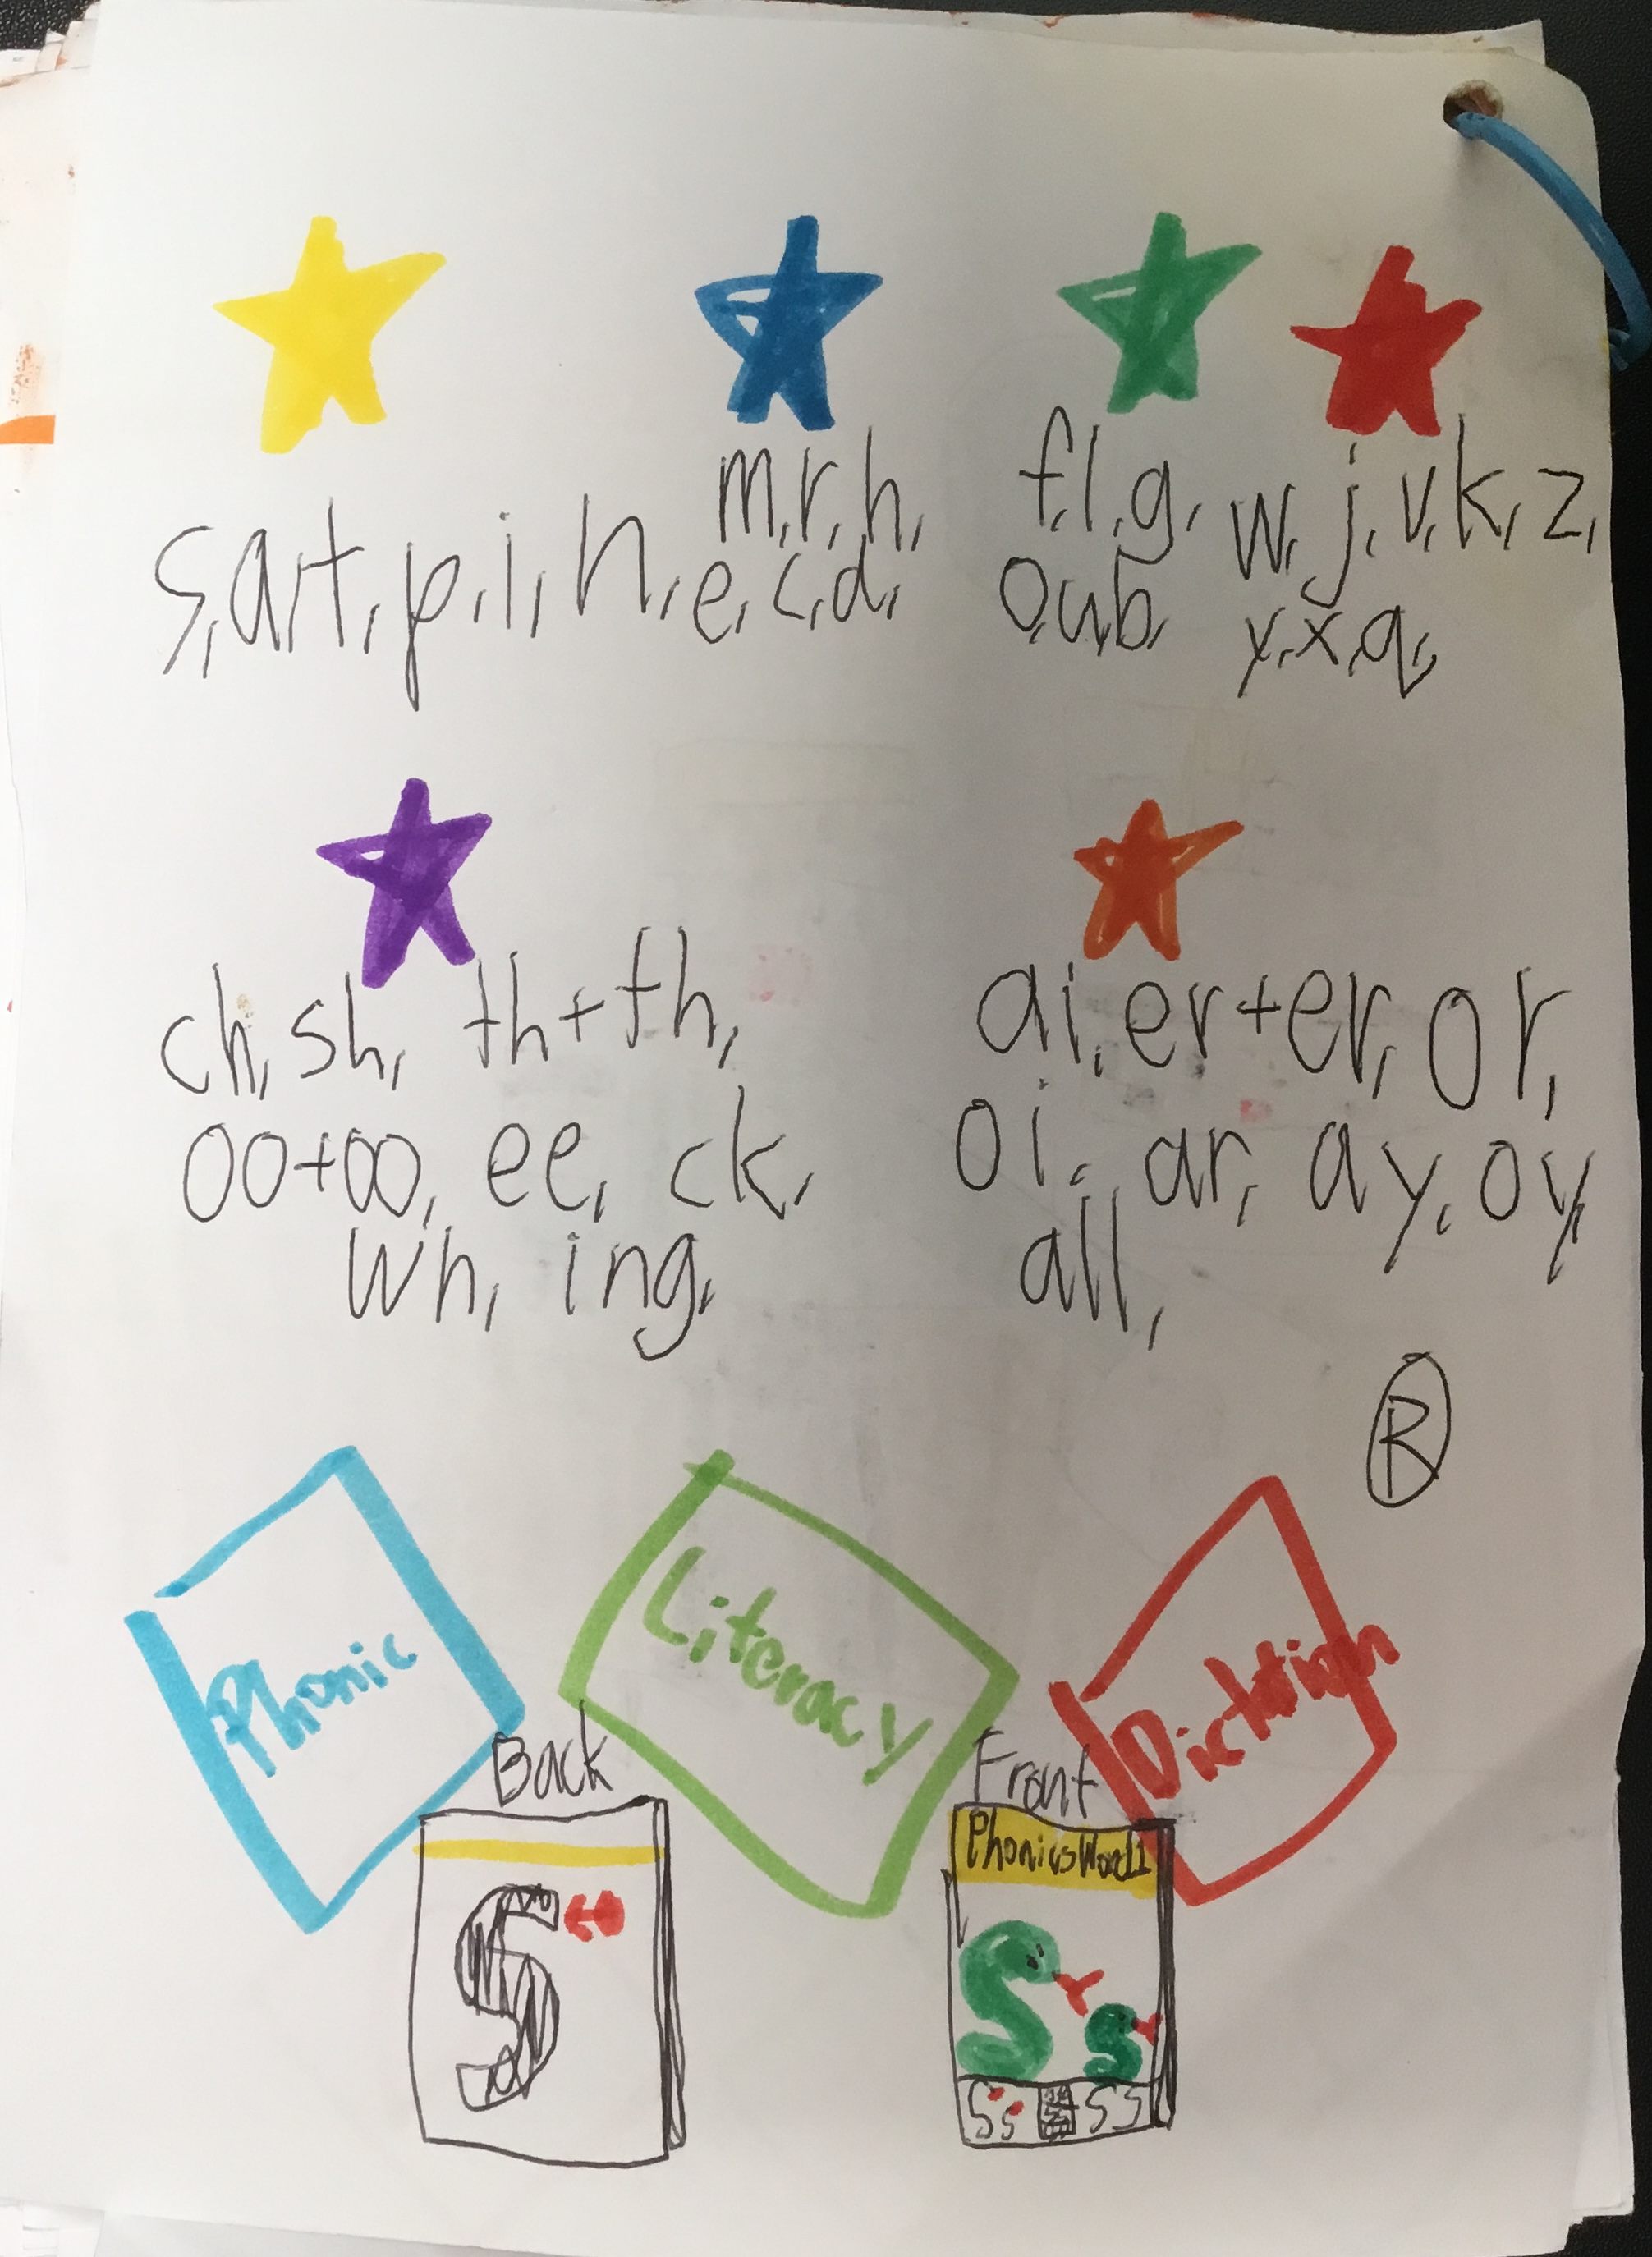 s,a,t,p,i,n,
m,r,h,
e,c,d,
f,l,g,
o,u,b,
w,j,v,k,z,
y,x,q,
ch,sh, th+th,
oo+oo, ee, ck,
wh, ing,
ai,er+er,or,
oi, ar, ay,oy,
all,
R
Phonic
Literacy
Dictation
Back
S
Front
Phonics
Ss SS